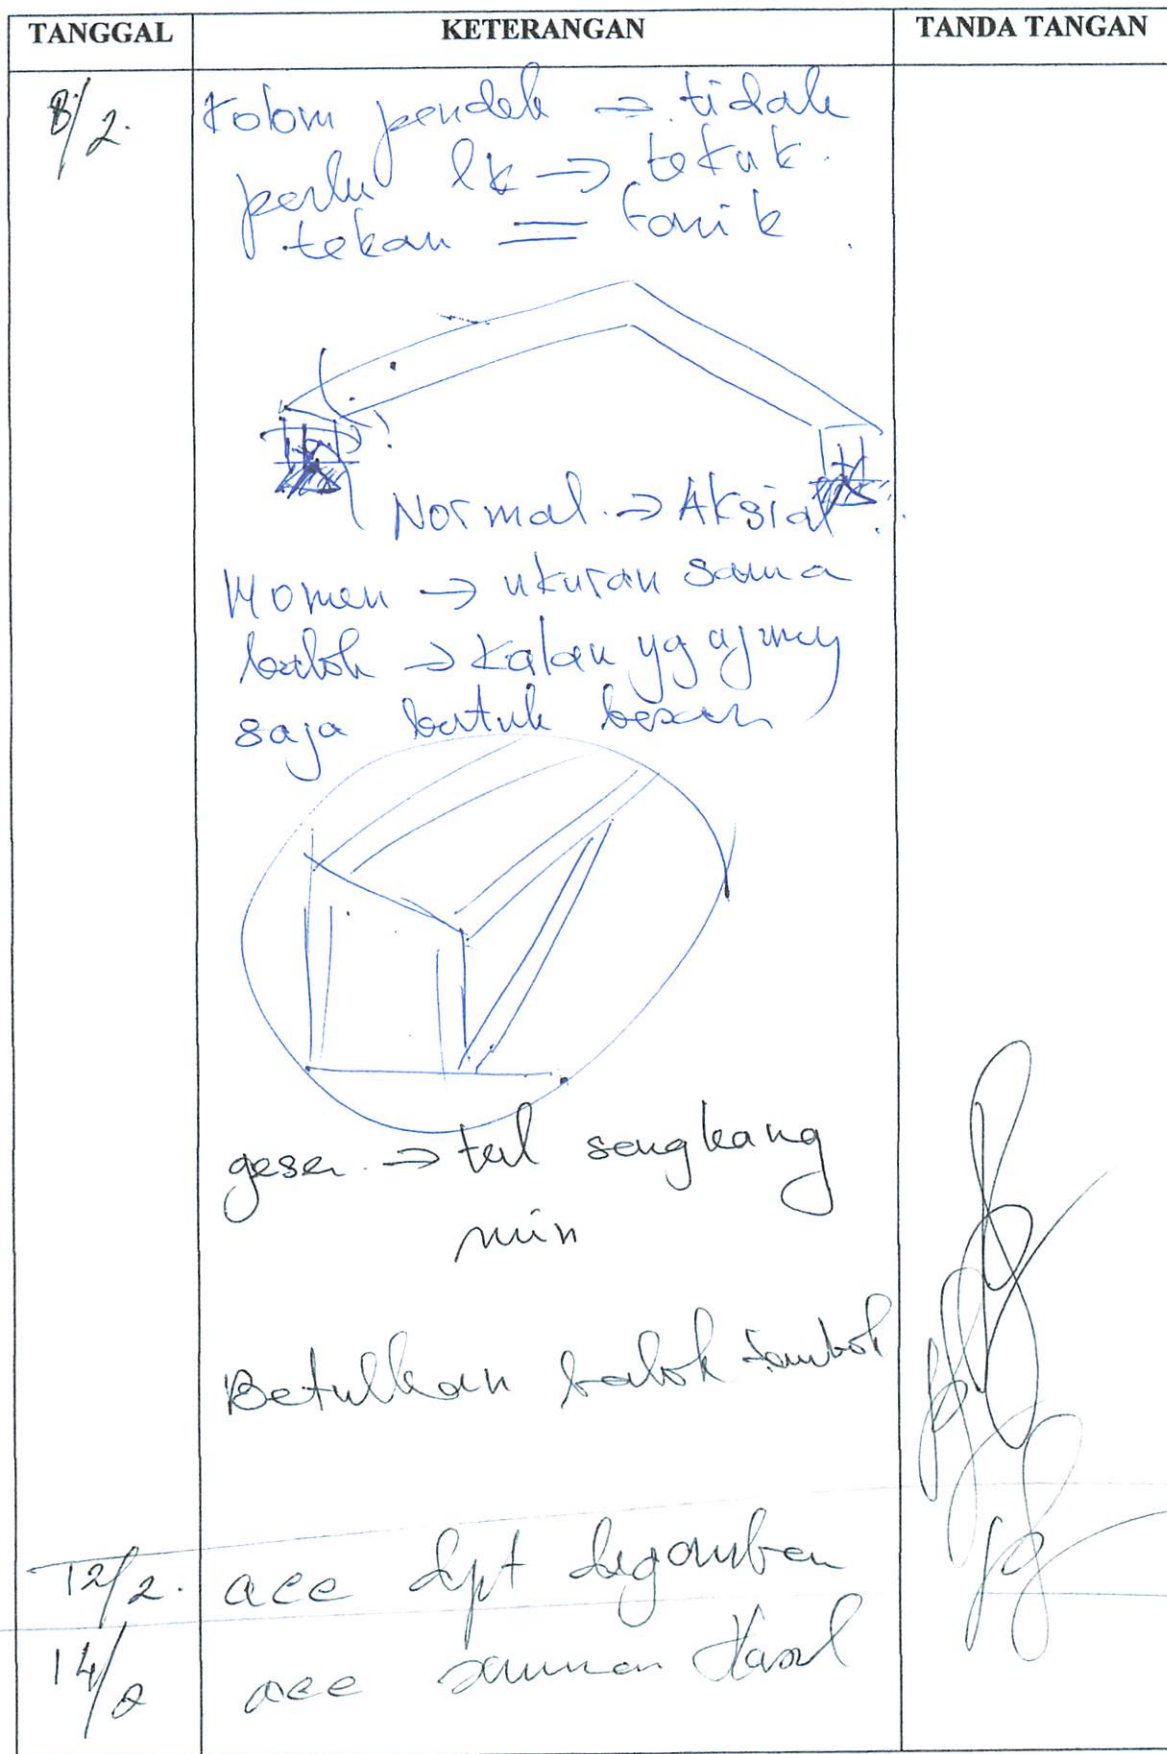 TANGGAL KETERANGAN TANDA TANGAN
8/2. Kolom pendek → tidak
perlu lk → tekuk.
tekan = tarik
Normal → Aksial
Momen → ukuran sama
balok → Kalau yg
saja bentuk
geser → tul sengkang
min
Betulkan balok
12/2. acc dpt digambar
14/2 acc Hasil